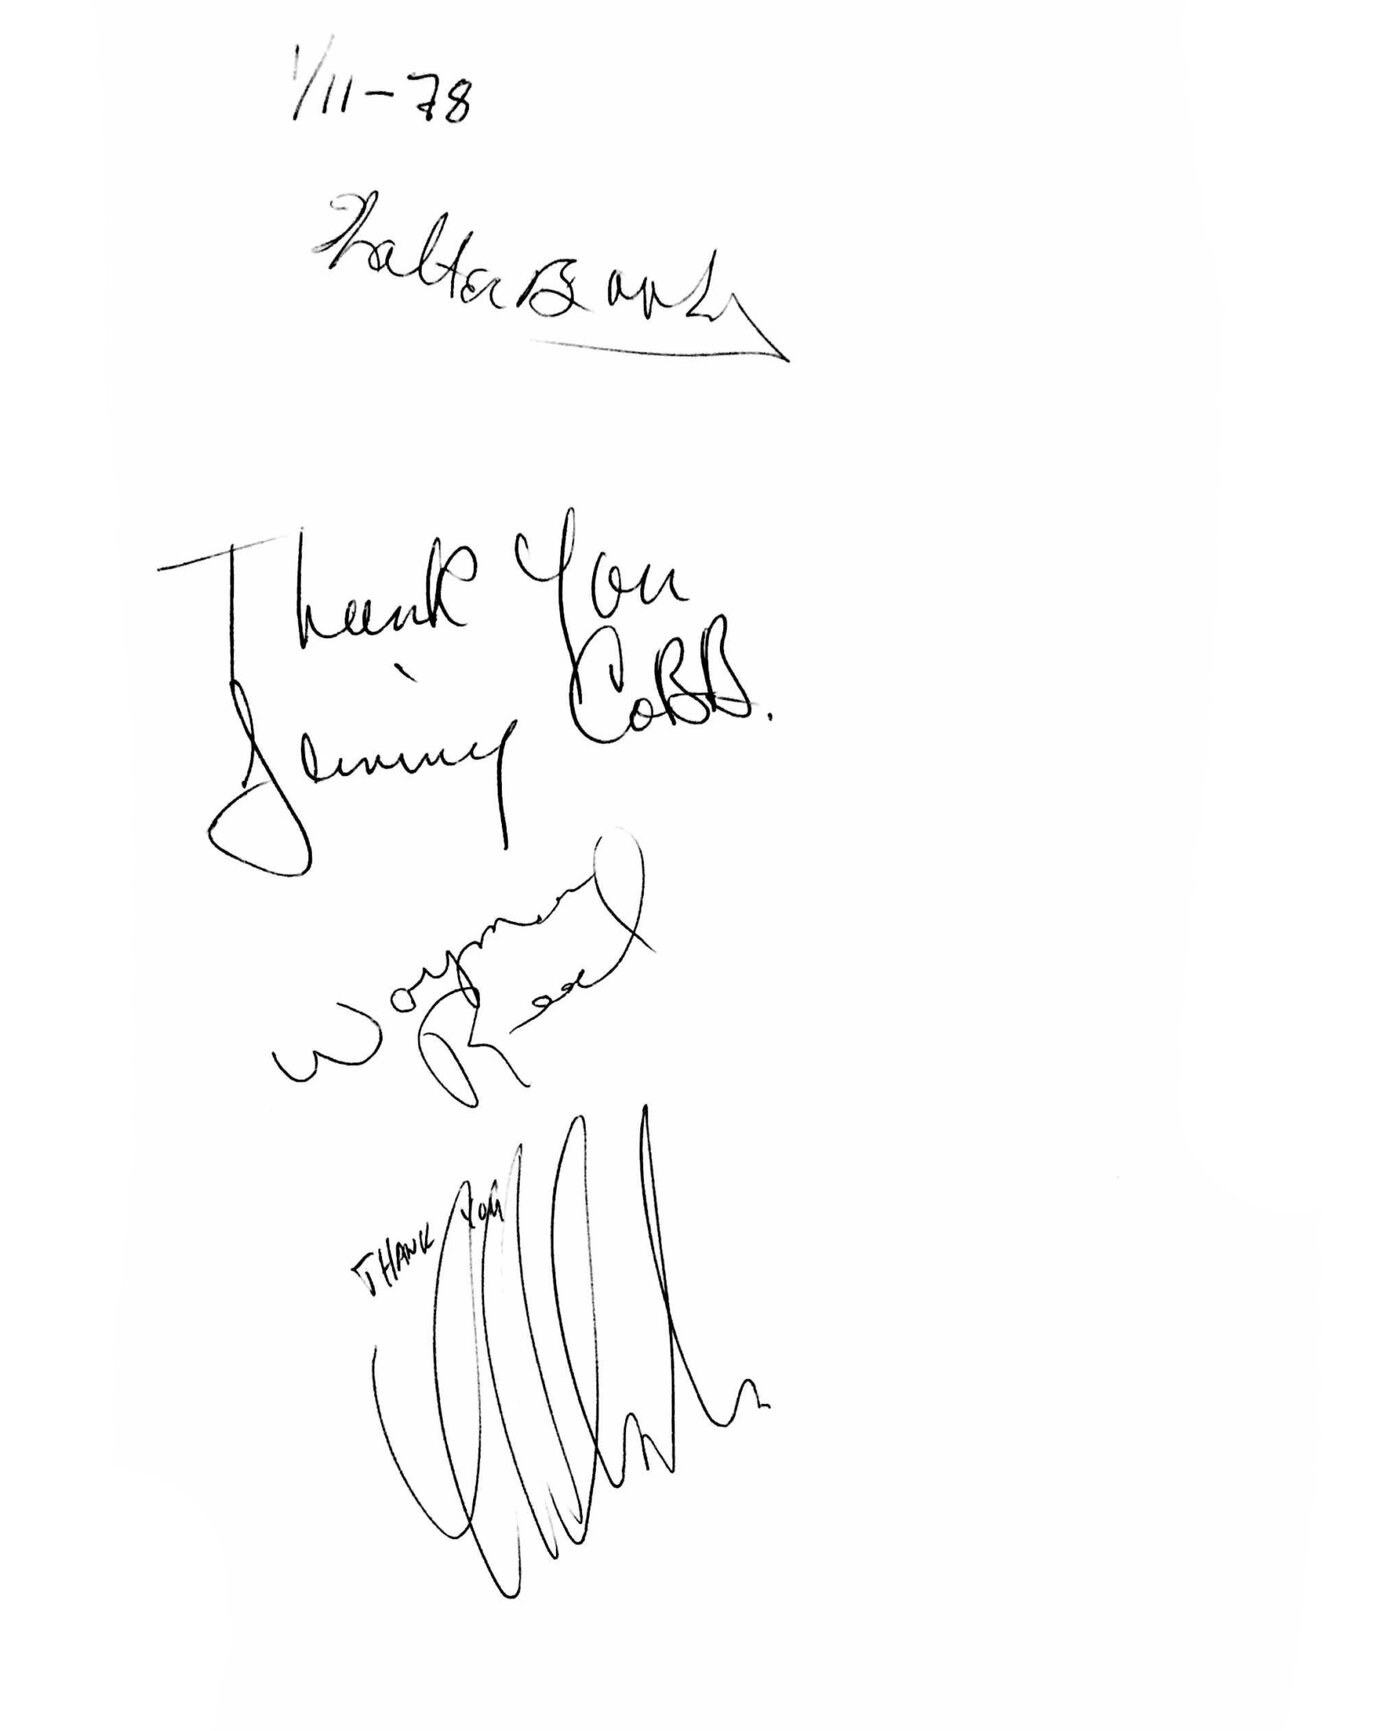 1/11-78
Walter Booker
Thank You
Jimmy CoBB.
Waymon
Reed
THANK YOU